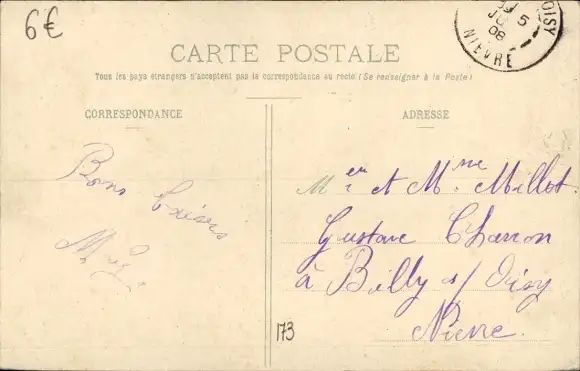 6€
OISY
5
JU
08
NIEVRE
CARTE POSTALE
Tous les pays étrangers n'acceptent pas la correspondance au recto (Se renseigner à la Poste)
CORRESPONDANCE
ADRESSE
Bons
Baisers
Mer et Mme Millot
Gustave Charron
à Billy s/ Oisy
Nièvre.
173